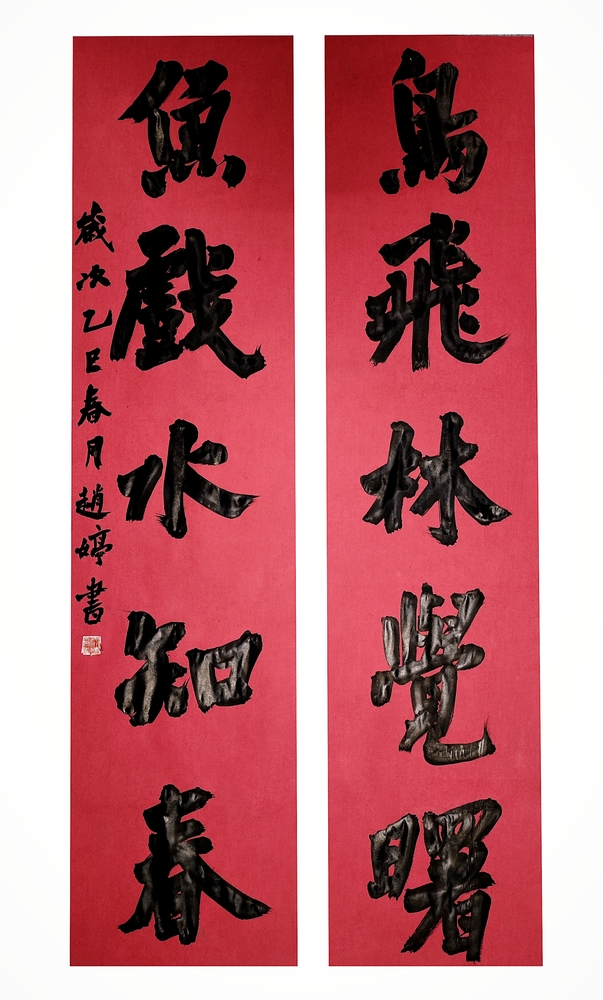 鳥飛林覺曙
魚戲水知春
歲次乙巳春月趙婷書